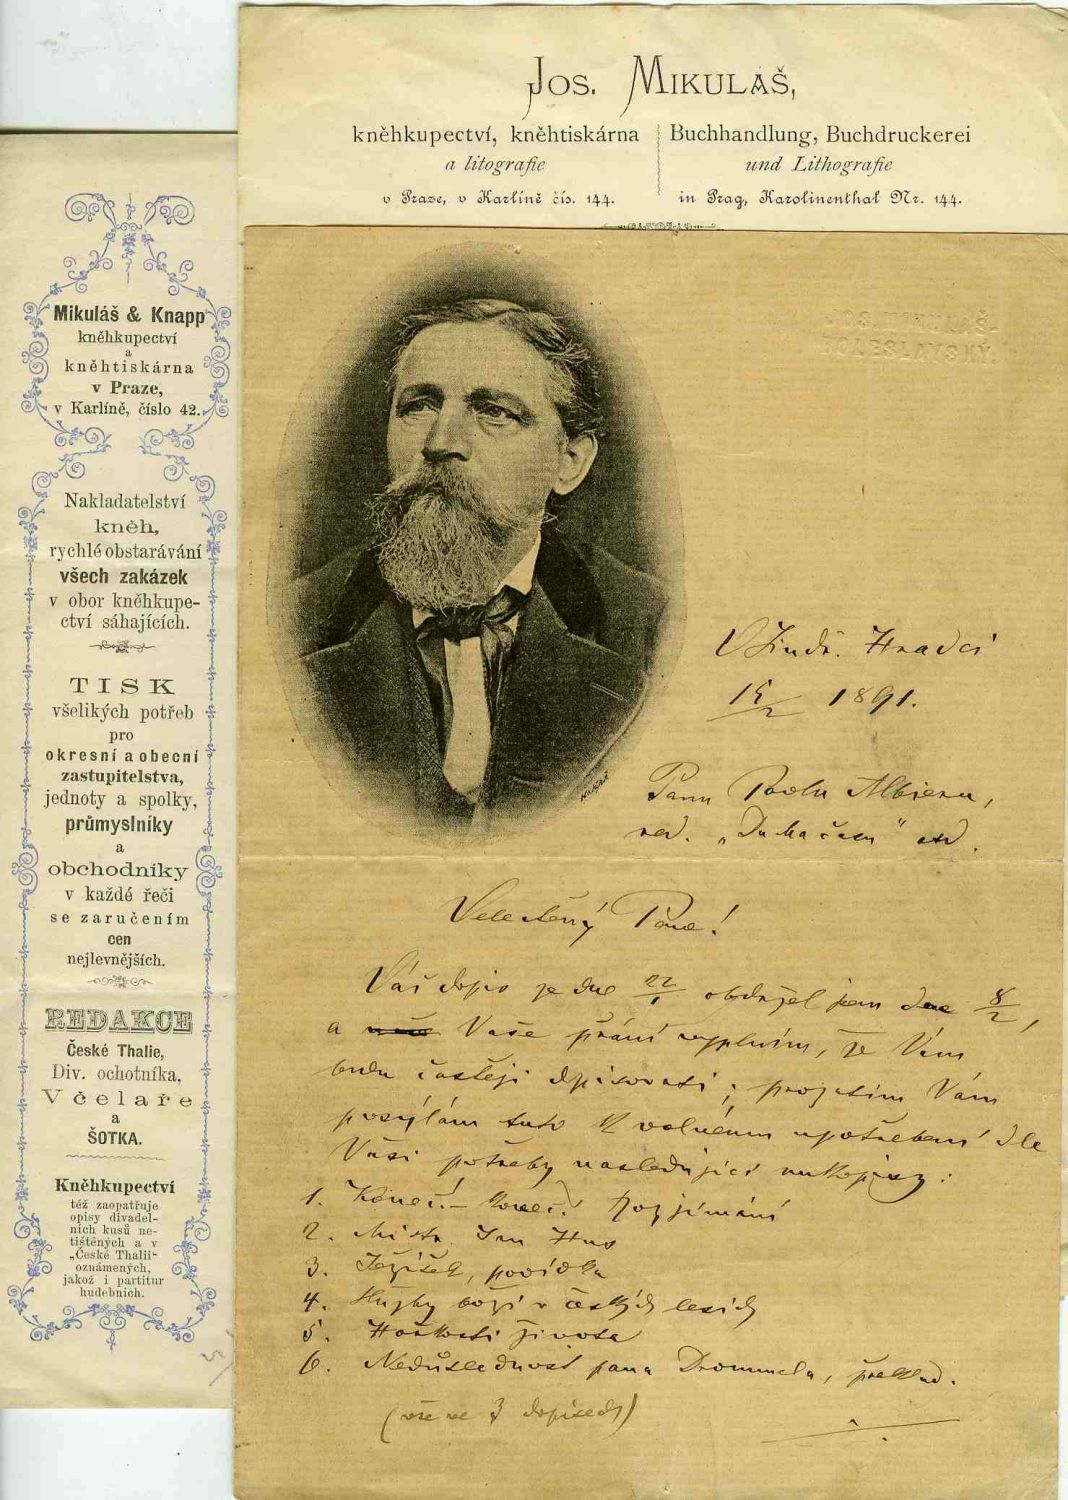 Jos. Mikuláš,
kněhkupectví, kněhtiskárna
a litografie
v Praze, v Karlíně čís. 144.
Buchhandlung, Buchdruckerei
und Lithografie
in Prag, Karolinenthal Nr. 144.
Mikuláš & Knapp
kněhkupectví
a
kněhtiskárna
v Praze,
v Karlíně, číslo 42.
Nakladatelství
kněh,
rychlé obstarávání
všech zakázek
v obor kněhkupe-
ctví sáhajících.
TISK
všelikých potřeb
pro
okresní a obecní
zastupitelstva,
jednoty a spolky,
průmyslníky
a
obchodníky
v každé řeči
se zaručením
cen
nejlevnějších.
REDAKCE
České Thalie,
Div. ochotníka,
Včelaře
a
ŠOTKA.
Kněhkupectví
též zaopatřuje
opisy divadel-
ních kusů ne-
tištěných a v
„České Thalii"
oznámených,
jakož i partitur
hudebních.
JOS. MIKULÁŠ-
BOLESLAVSKÝ.
V Jindř. Hradci
15/2 1891.
Panu Pavlu Albieru,
red. „Ducha času" atd.
Velectěný Pane!
Váš dopis ze dne 22/1 obdržel jsem dne 8/2,
a Vaše přání vyplním, že Vám
budu častěji dopisovati; prozatím Vám
posýlám tuto k volnému upotřebení dle
Vaší potřeby následující rukopisy:
1. přijímání
2. Mistr Jan Hus
3. Ježíšek, povídka
4. Služby boží v českých lesích
5. Hořkosti života
6. Nedůslednost pana Drommela, překlad.
(vše ve 3 dopisech)